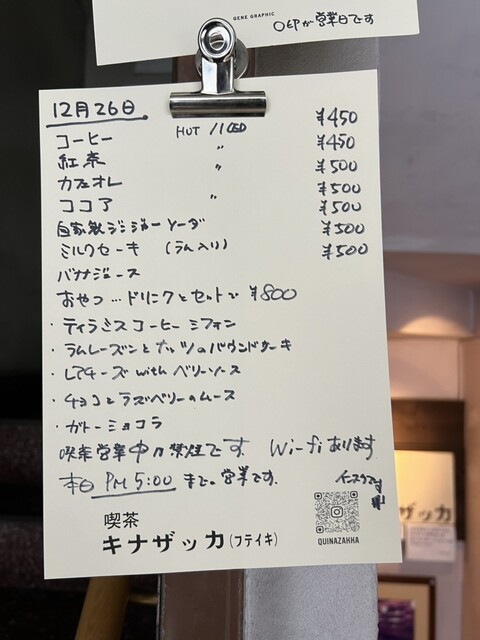 GENE GRAPHIC
○印が営業日です
12月26日.
コーヒー HOT / ICED ¥450
紅茶 〃 ¥450
カフェオレ 〃 ¥500
ココア ¥500
自家製ジンジャーソーダ ¥500
ミルクセーキ (ラム入り) ¥500
バナナジュース ¥500
おやつ…ドリンクとセットで ¥800
・ティラミスコーヒーシフォン
・ラムレーズンとナッツのパウンドケーキ
・レアチーズ with ベリーソース
・チョコとラズベリーのムース
・ガトーショコラ
喫茶営業中は禁煙です. Wi-fi あります
本日 PM 5:00 までの営業です.
インスタです
喫茶
キナザッカ(フテイキ)
QUINAZAKKA
ザッカ